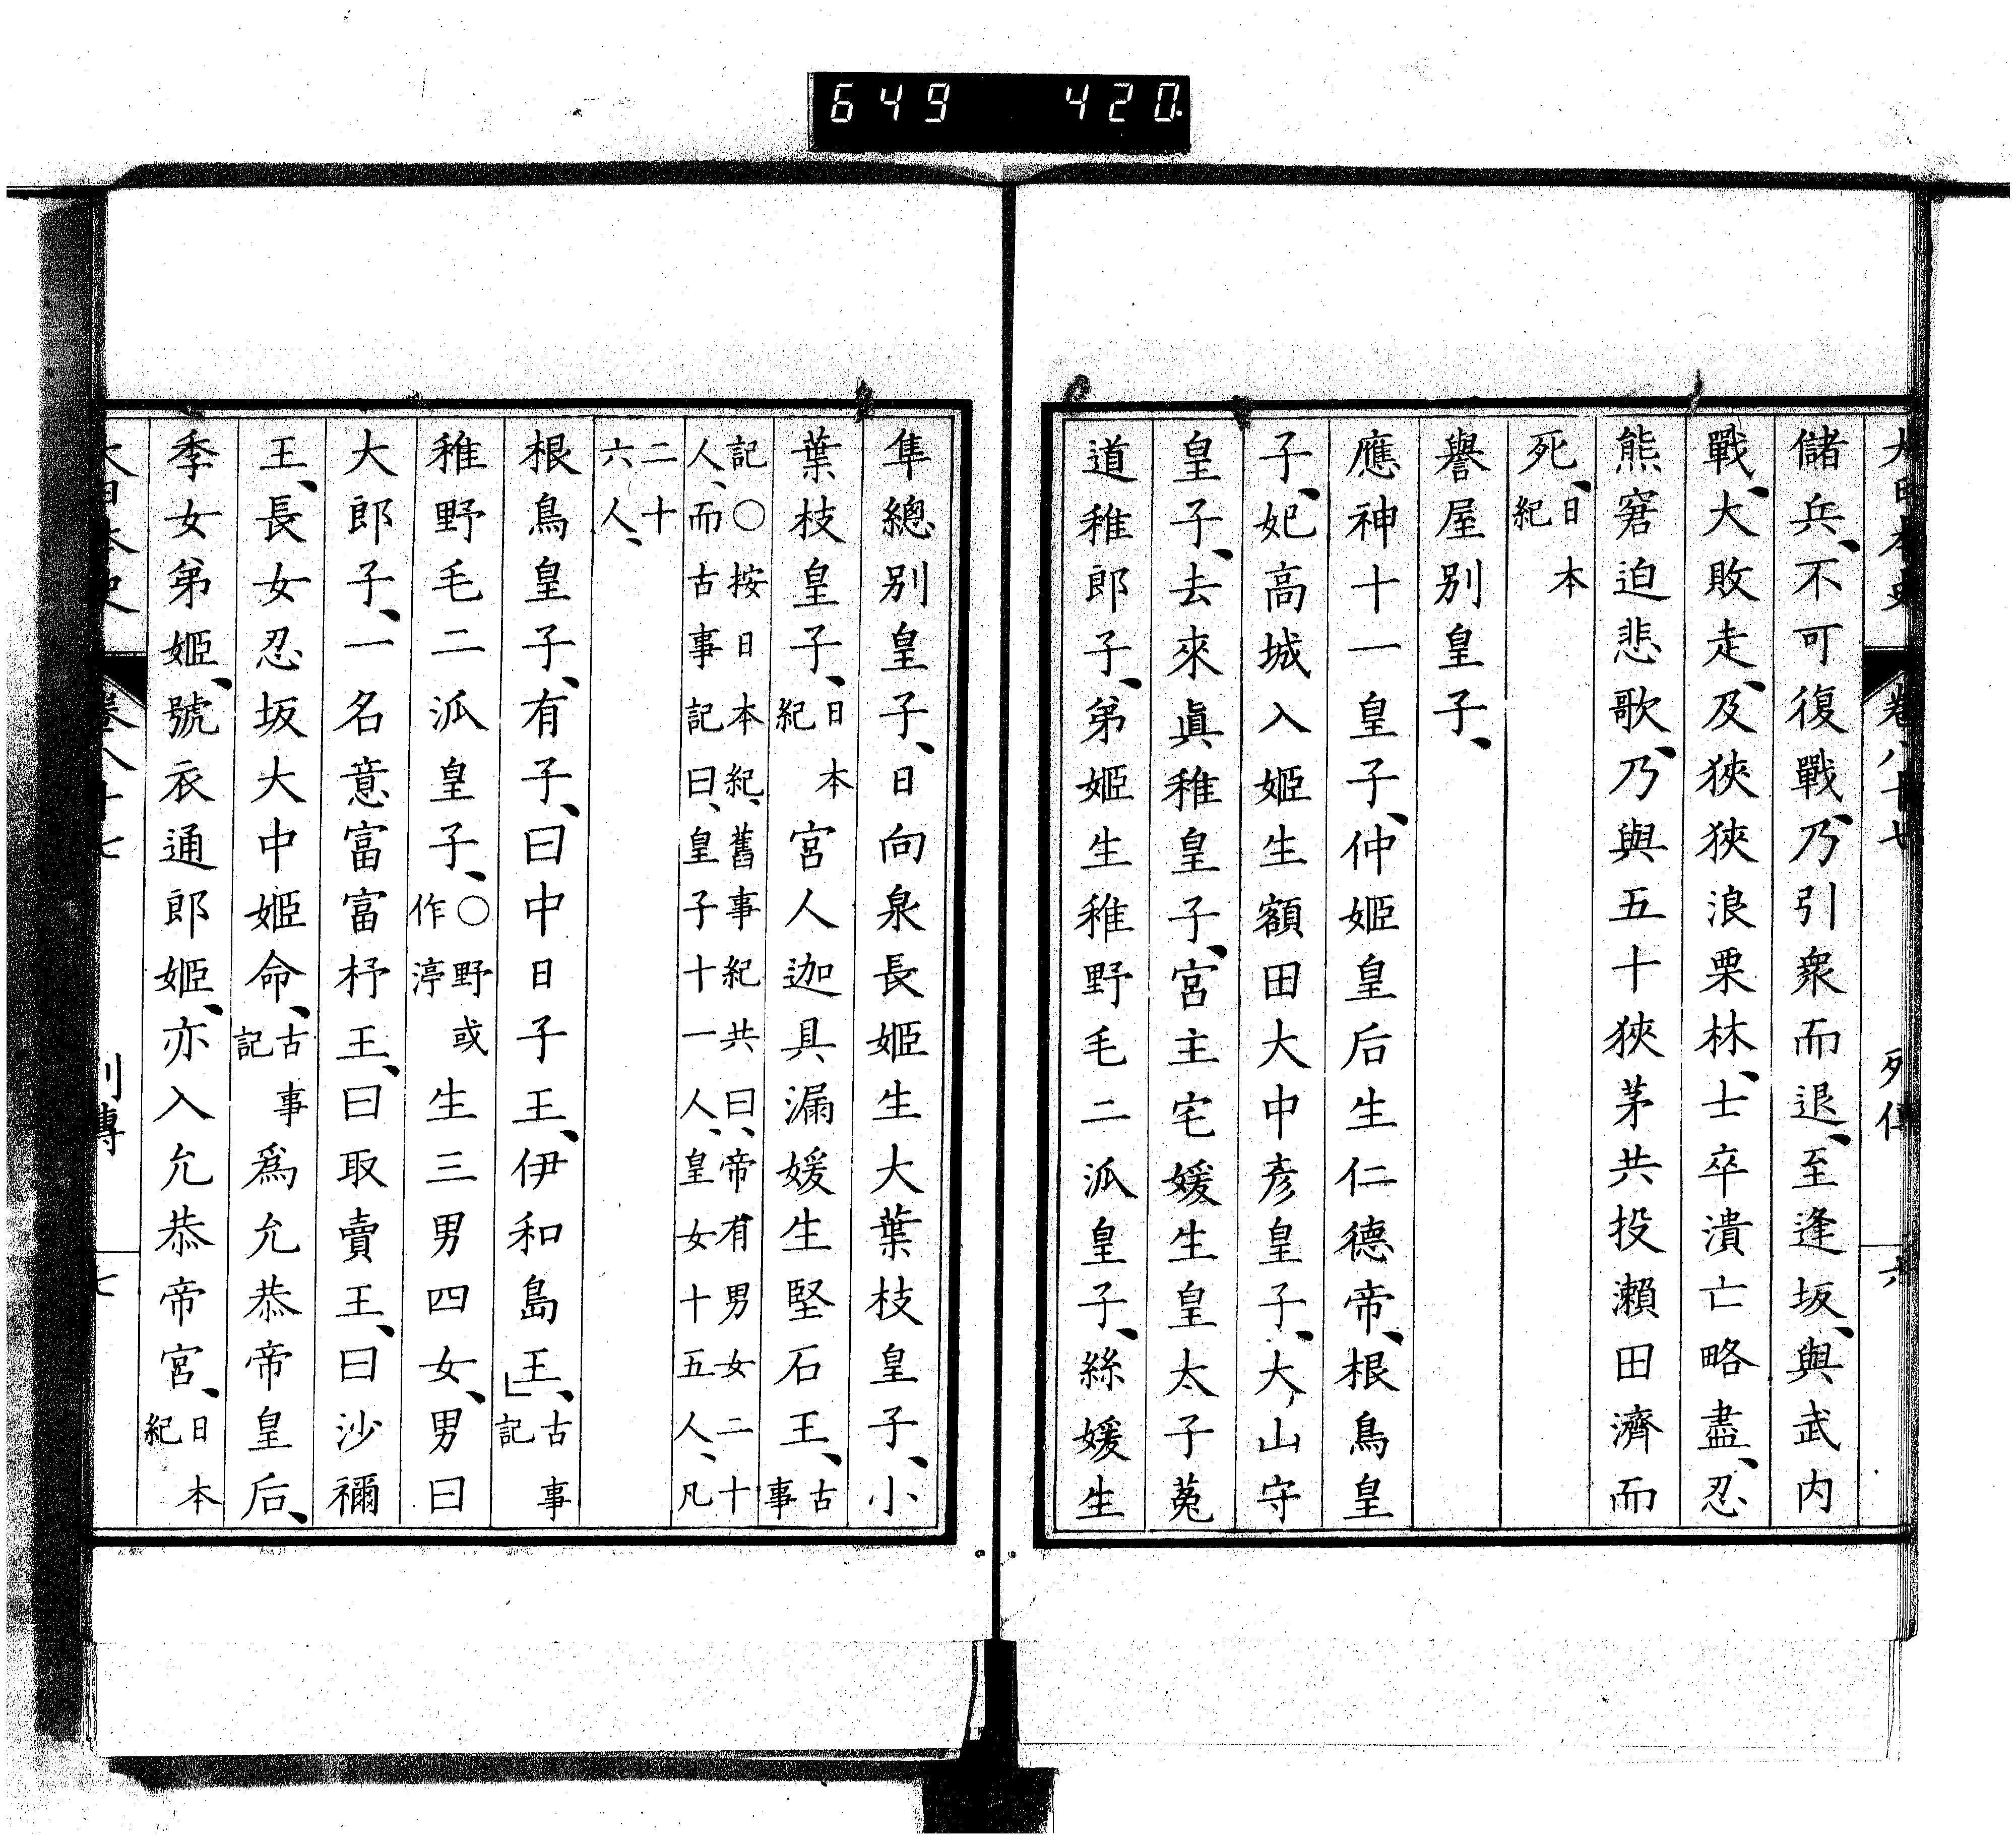 649 420.
大日本史 卷八十七 列傳 六
儲兵、不可復戰、乃引衆而退、至逢坂、與武内
戰、大敗走、及狹狹浪栗林、士卒潰亡略盡、忍
熊窘迫悲歌、乃與五十狹茅共投瀨田濟而
死、日本紀
譽屋別皇子、
應神十一皇子、仲姬皇后生仁德帝、根鳥皇
子、妃高城入姬生額田大中彥皇子、大山守
皇子、去來眞稚皇子、宮主宅媛生皇太子菟
道稚郎子、弟姬生稚野毛二派皇子、絲媛生
隼總別皇子、日向泉長姬生大葉枝皇子、小
葉枝皇子、日本紀宮人迦具漏媛生堅石王、古事
記○按日本紀、舊事紀共曰、帝有男女二十
人、而古事記曰、皇子十一人、皇女十五人、凡
二十
六人、
根鳥皇子、有子、曰中日子王、伊和島王、」古事記
稚野毛二派皇子、○野或作渟生三男四女、男曰
大郎子、一名意富富杼王、曰取賣王、曰沙禰
王、長女忍坂大中姬命、古事記爲允恭帝皇后、
季女弟姬、號衣通郎姬、亦入允恭帝宮、日本紀
大日本史 卷八十七 列傳 七